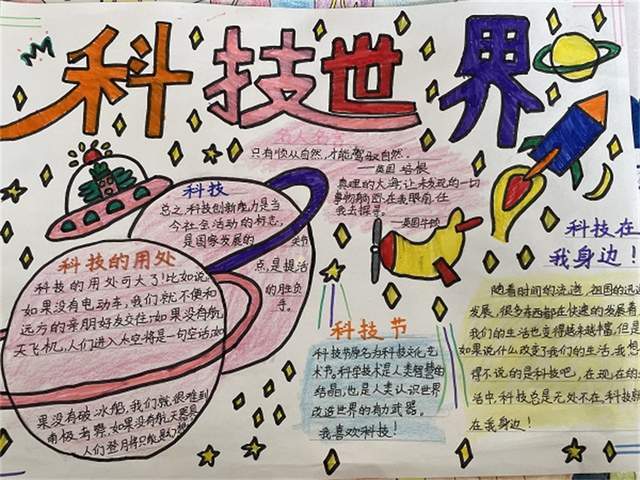 科技世界
名人名言
只有顺从自然,才能驾驭自然。
——英国 培根
真理的大海,让未发现的一切
事物躺卧在我眼前,任
我去探寻。
——英国牛顿
科技
总之,科技创新能力是当
今社会活动的标志,
是国家发展的 关节
点,是提活
的胜负
手。
科技的用处
科技的用处可大了!比如说,
如果没有电动车,我们就不便和
远方的亲朋好友交往,如果没有航
天飞机,人们进入太空将是一句空话,如
果没有破冰船,我们就很难到
南极考察,如果没有航天器具
人们登月将只能是幻想
科技节
科技节原名为科技文化艺
术节,科学技术是人类智慧的
结晶,也是人类认识世界
改造世界的有力武器。
我喜欢科技!
科技在
我身边!
随着时间的流逝,祖国的迅速
发展,很多东西都在快速的发展着,
我们的生活也变得越来越棒,但是
如果说什么改变了我们的生活,我想
得不说的是科技吧,在现在的生
活中,科技总是无处不在,科技就
在我身边!